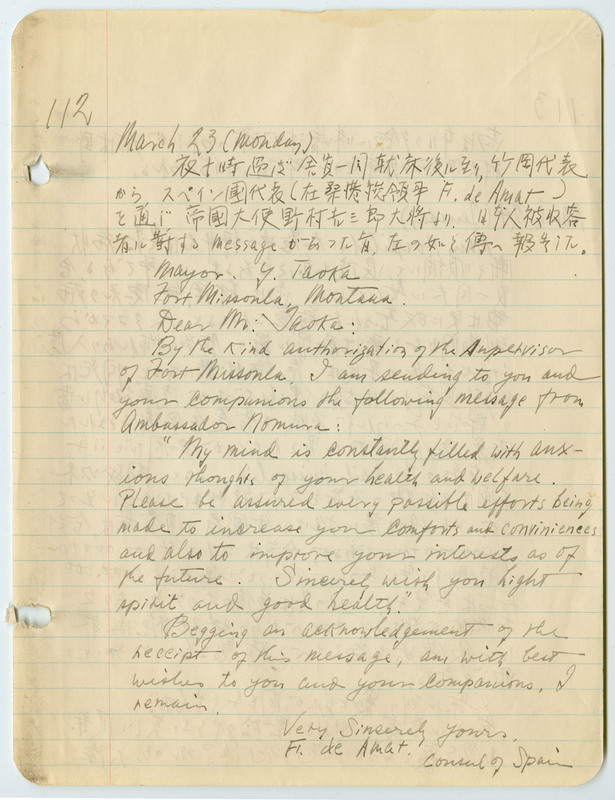 112
March 23 (Monday)
夜十時過ぎ舎員一同就床後に至り，竹岡代表
から スペイン國代表(在桑港領事 F. de Amat)
を通じ 帝國大使野村吉三郎大将より，日本人被収容
者に對する message があった旨，左の如く傳へ報告した。
Mayor. Y. Taoka
Fort Missoula, Montana.
Dear Mr: Taoka:
By the kind authorization of the Supervisor
of Fort Missoula, I am sending to you and
your companions the following message from
Ambassador Nomura:
"My mind is constantly filled with anx-
ious thoughts of your health and welfare.
Please be assured every possible efforts being
made to increase your comforts and conviniences
and also to improve your interests as of
the future. Sincerel wish you hight
spirit and good health."
Begging an acknowledgement of the
receipt of this message, am with best
wishes to you and your companions, I
remain.
Very Sincerely yours,
F. de Amat.
Consul of Spain